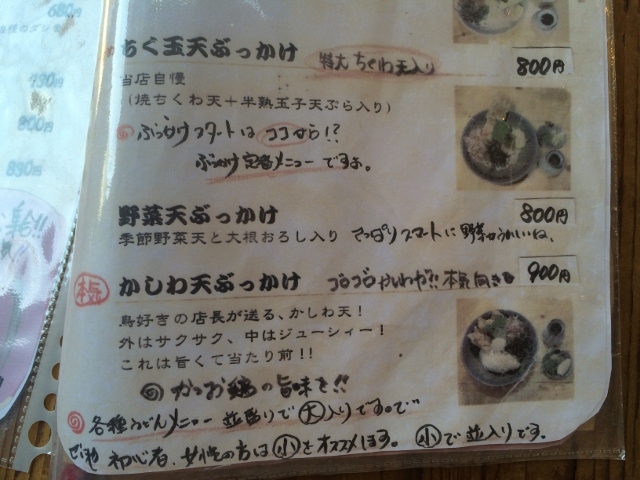 680円
730円
800円
830円
ちく玉天ぶっかけ 特大ちくわ天入り 800円
当店自慢
(焼ちくわ天+半熟玉子天ぷら入り)
ぶっかけスタートはココから!?
ぶっかけ定番メニューですよ。
野菜天ぶっかけ 800円
季節野菜天と大根おろし入り さっぱりスマートに野菜
本気 かしわ天ぶっかけ ゴロゴロかしわが!!本気向き 900円
鳥好きの店長が送る、かしわ天!
外はサクサク、中はジューシィー!
これは旨くて当たり前!!
かつお鶏の旨味を!!
各種うどんメニュー並盛りで大入りです。で
初心者、女性の方は小をオススメします。小で並入りです。